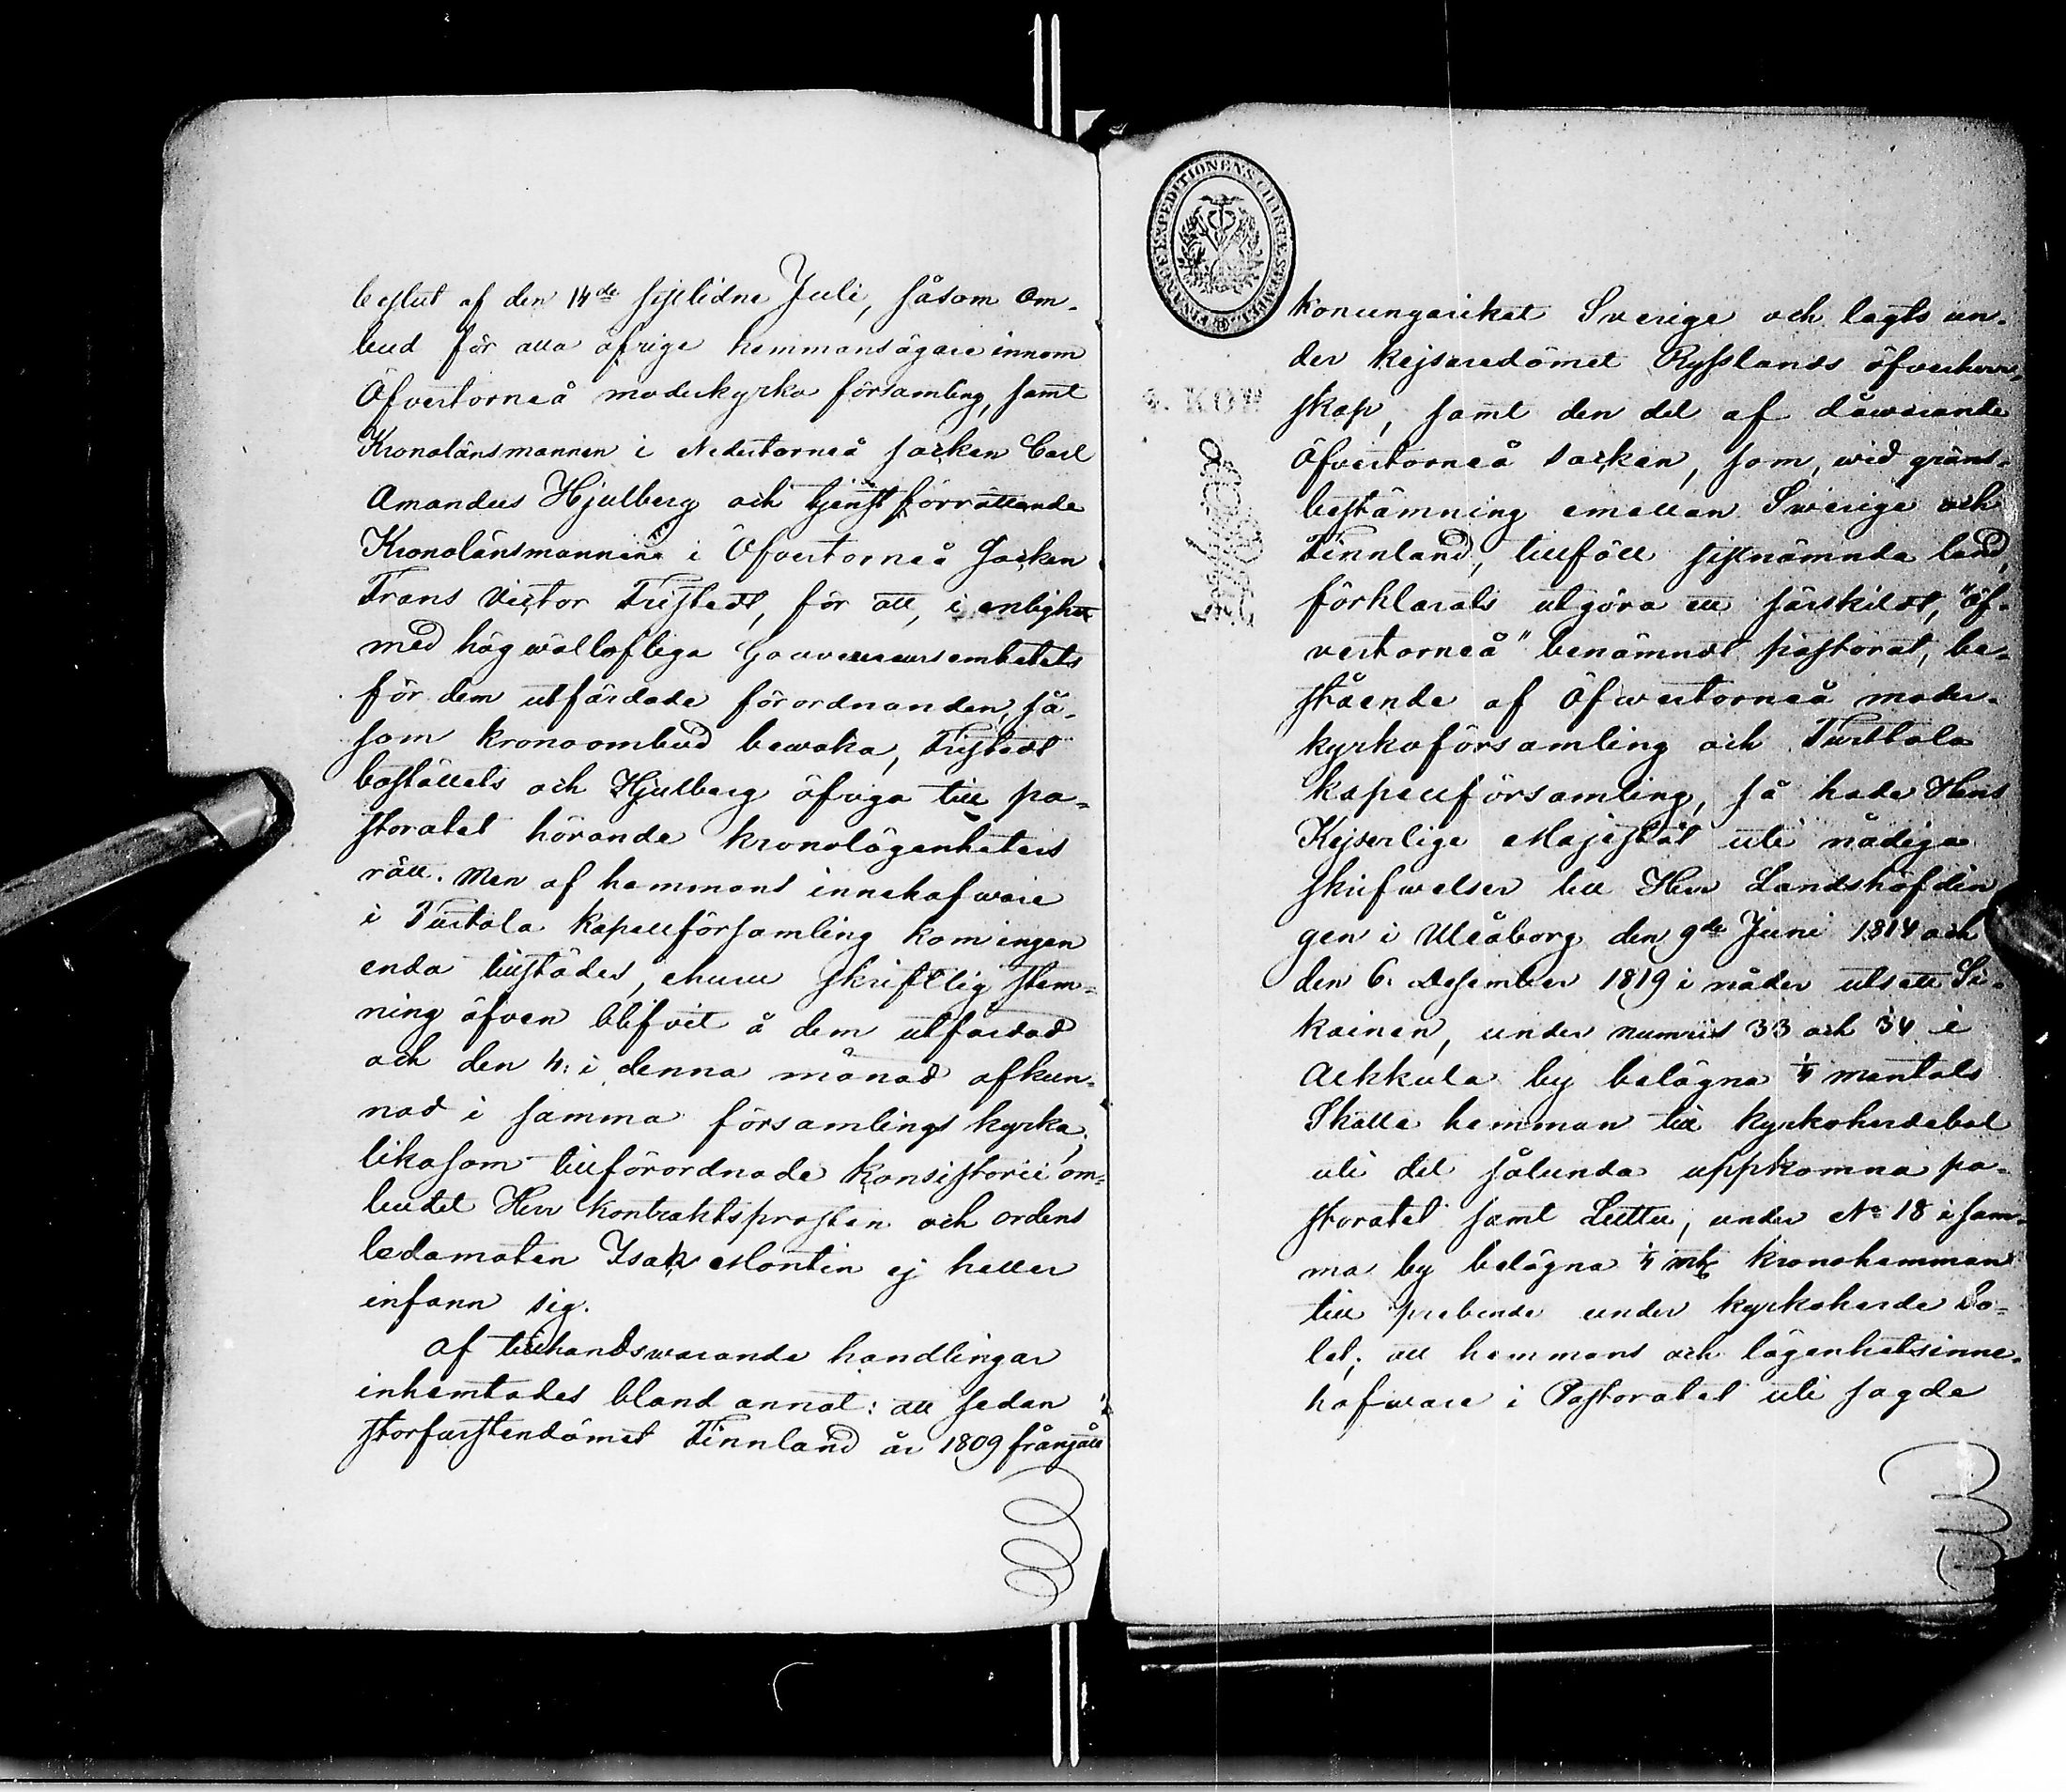 beslut af den 14de sistlidne Juli, såsom Om-
bud för alla öfrige hemmansägare innom
Öfvertorneå moderkyrko församling, samt
Kronolänsmannen i Nedertorneå socken Carl
Amandus Hjulberg och tjenstförrättande
Kronolänsmannene i Öfvertorneå Socken
Frans Victor Fristedt, för att, i enlighet
med högwällofliga Gouverneursembetets
för dem utfärdade förordnanden, så-
som kronoombud bewaka, Fristedt
boställets och Hjulberg öfriga till pa-
storatet hörande kronolägenheters
rätt. Men af hemmans innehafware
i Turtola kapellförsamling kom ingen
enda tillstädes, ehuru skriftlig stem-
ning äfven blifvit å dem utfärdad
och den 4: i denna månad afkun-
nad i samma församlings kyrka,
likasom tillförordnade Konsistorii om-
budet Herr Kontraktsprosten och ordens
ledamoten Isak Montin ej heller
infann sig.
Af tillhandswarande handlingar
inhemtades bland annat: att sedan
storfurstendömet Finnland år 1809 frångått
FINANCE EXPEDITIONENS CHARTÆ STEMPEL
4. KOP.
konungariket Sverige och lagts un-
der kejsaredömet Rysslands öfverherr-
skap, samt den del af dåwarande
Öfvertorneå socken, som, wid gräns-
bestämning emellan Swerige och
Finnland, tillföll sistnämnda land,
förklarats utgöra ett särskildt, "Öf-
vertorneå" benämndt pastorat, be-
stående af Öfwertorneå moder-
kyrkoförsamling och Turttola
kapellförsamling, så hade Hans
Kejserlige Majestät uti nådiga
skrifwelser till Herr Landshöfdin
gen i Uleåborg den 9de Juni 1814 och
den 6. December 1819 i nåder utsett
kainen, under numris 33 och 34 i
Alkkula by belägna 1/4 mantals
Skatte hemman till kyrkoherdebol
uti det sålunda uppkomna pa-
storatet samt Luttu, under No 18 i sam-
ma by belägna 1/4 mtl kronohemman
till prebende under kyrkoherde bo-
let; att hemmans och lägenhetsinne-
hafware i Pastoratet uti sagde